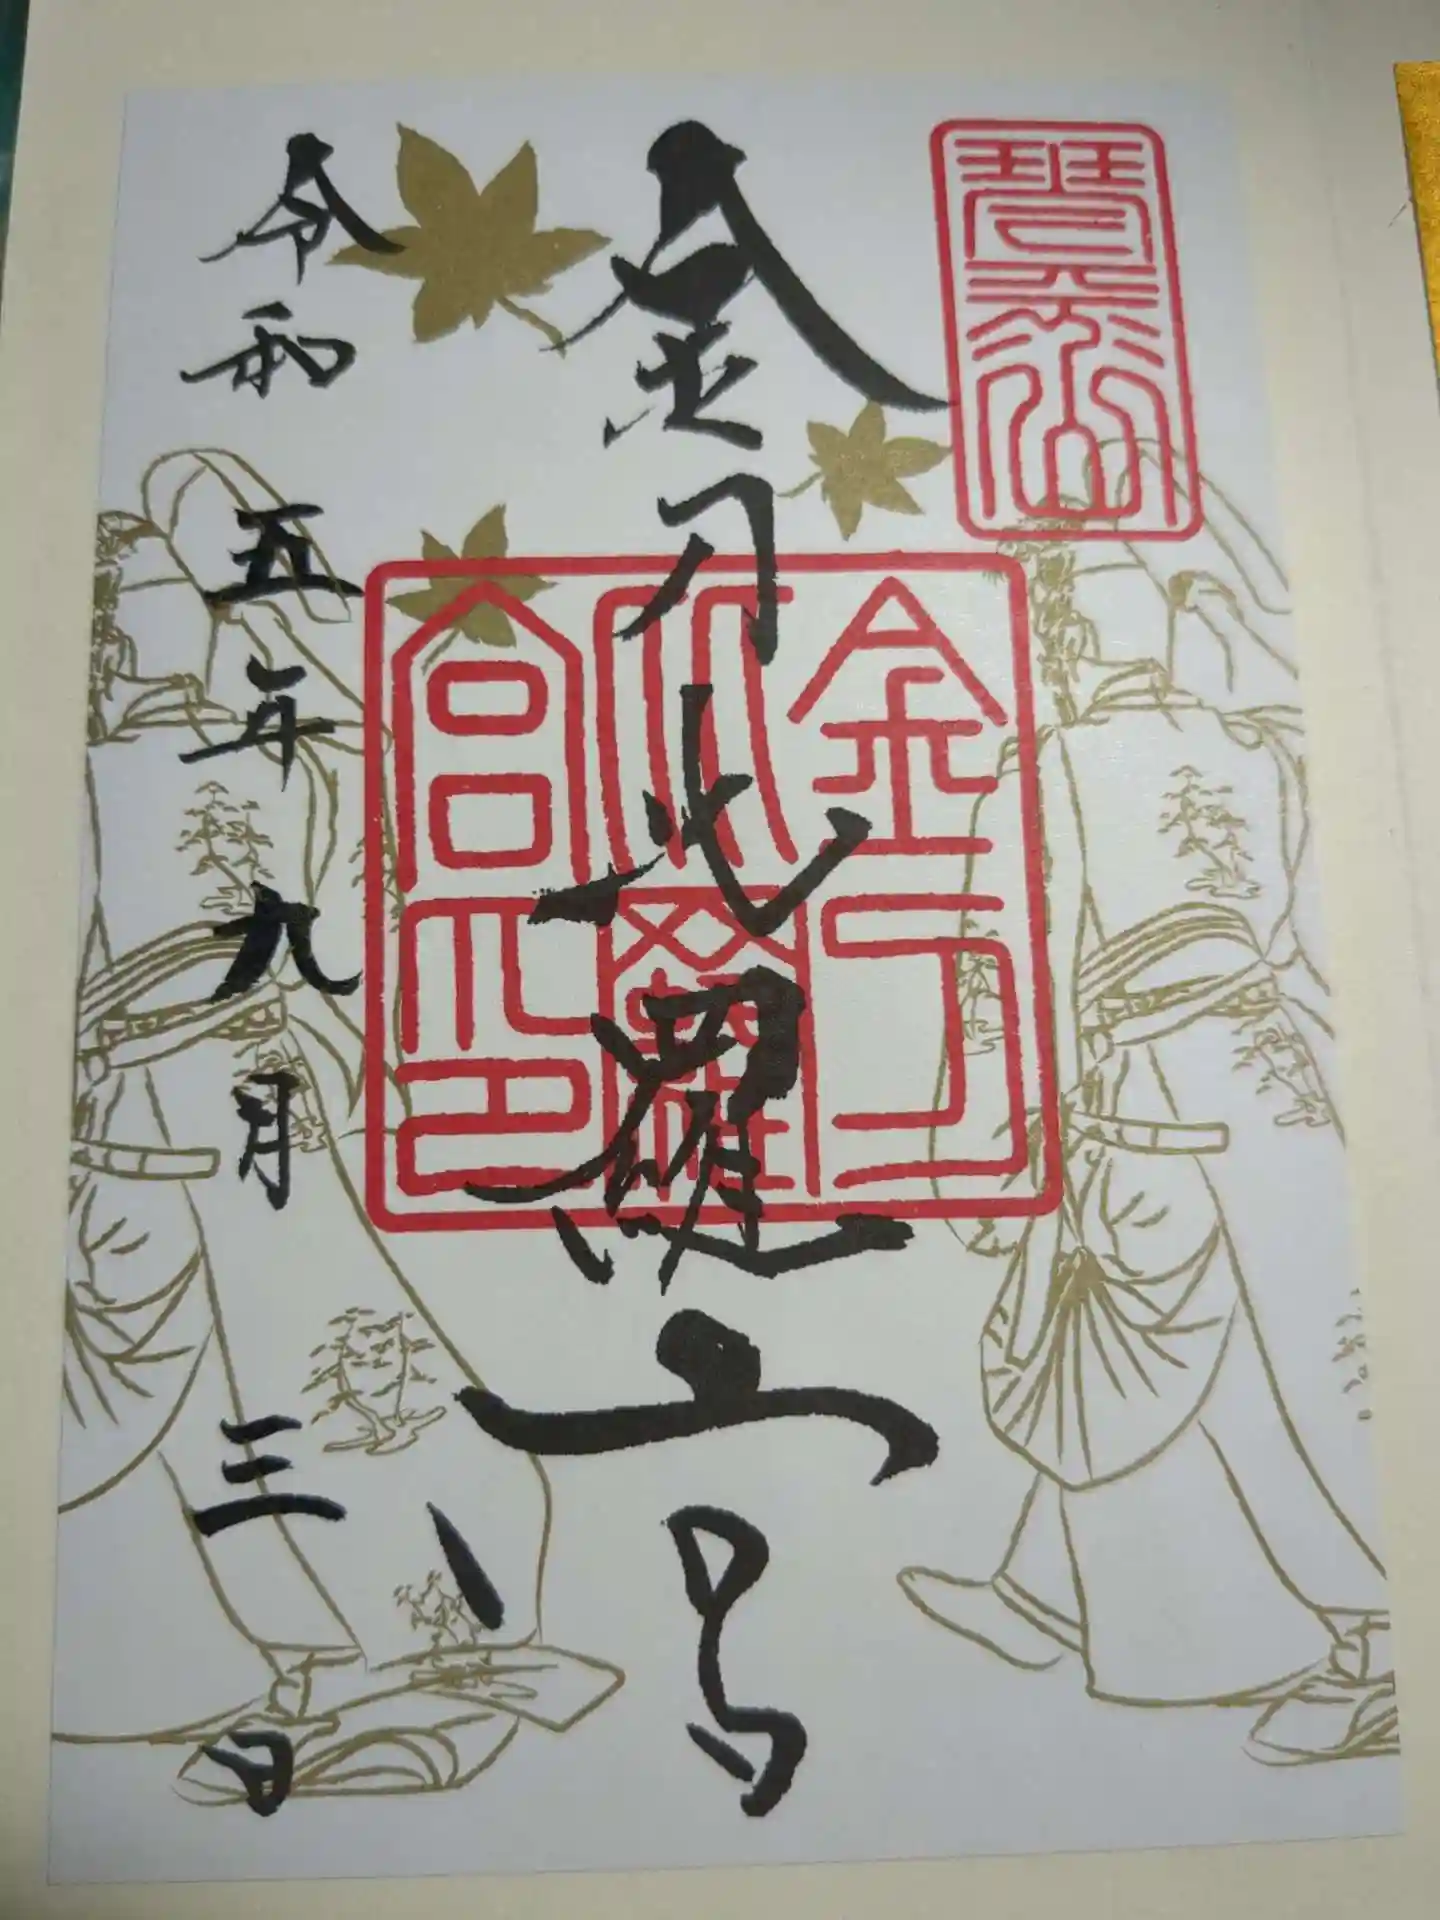 琴平山
金刀比羅宮
金刀
比羅
宮印
令和五年九月三日